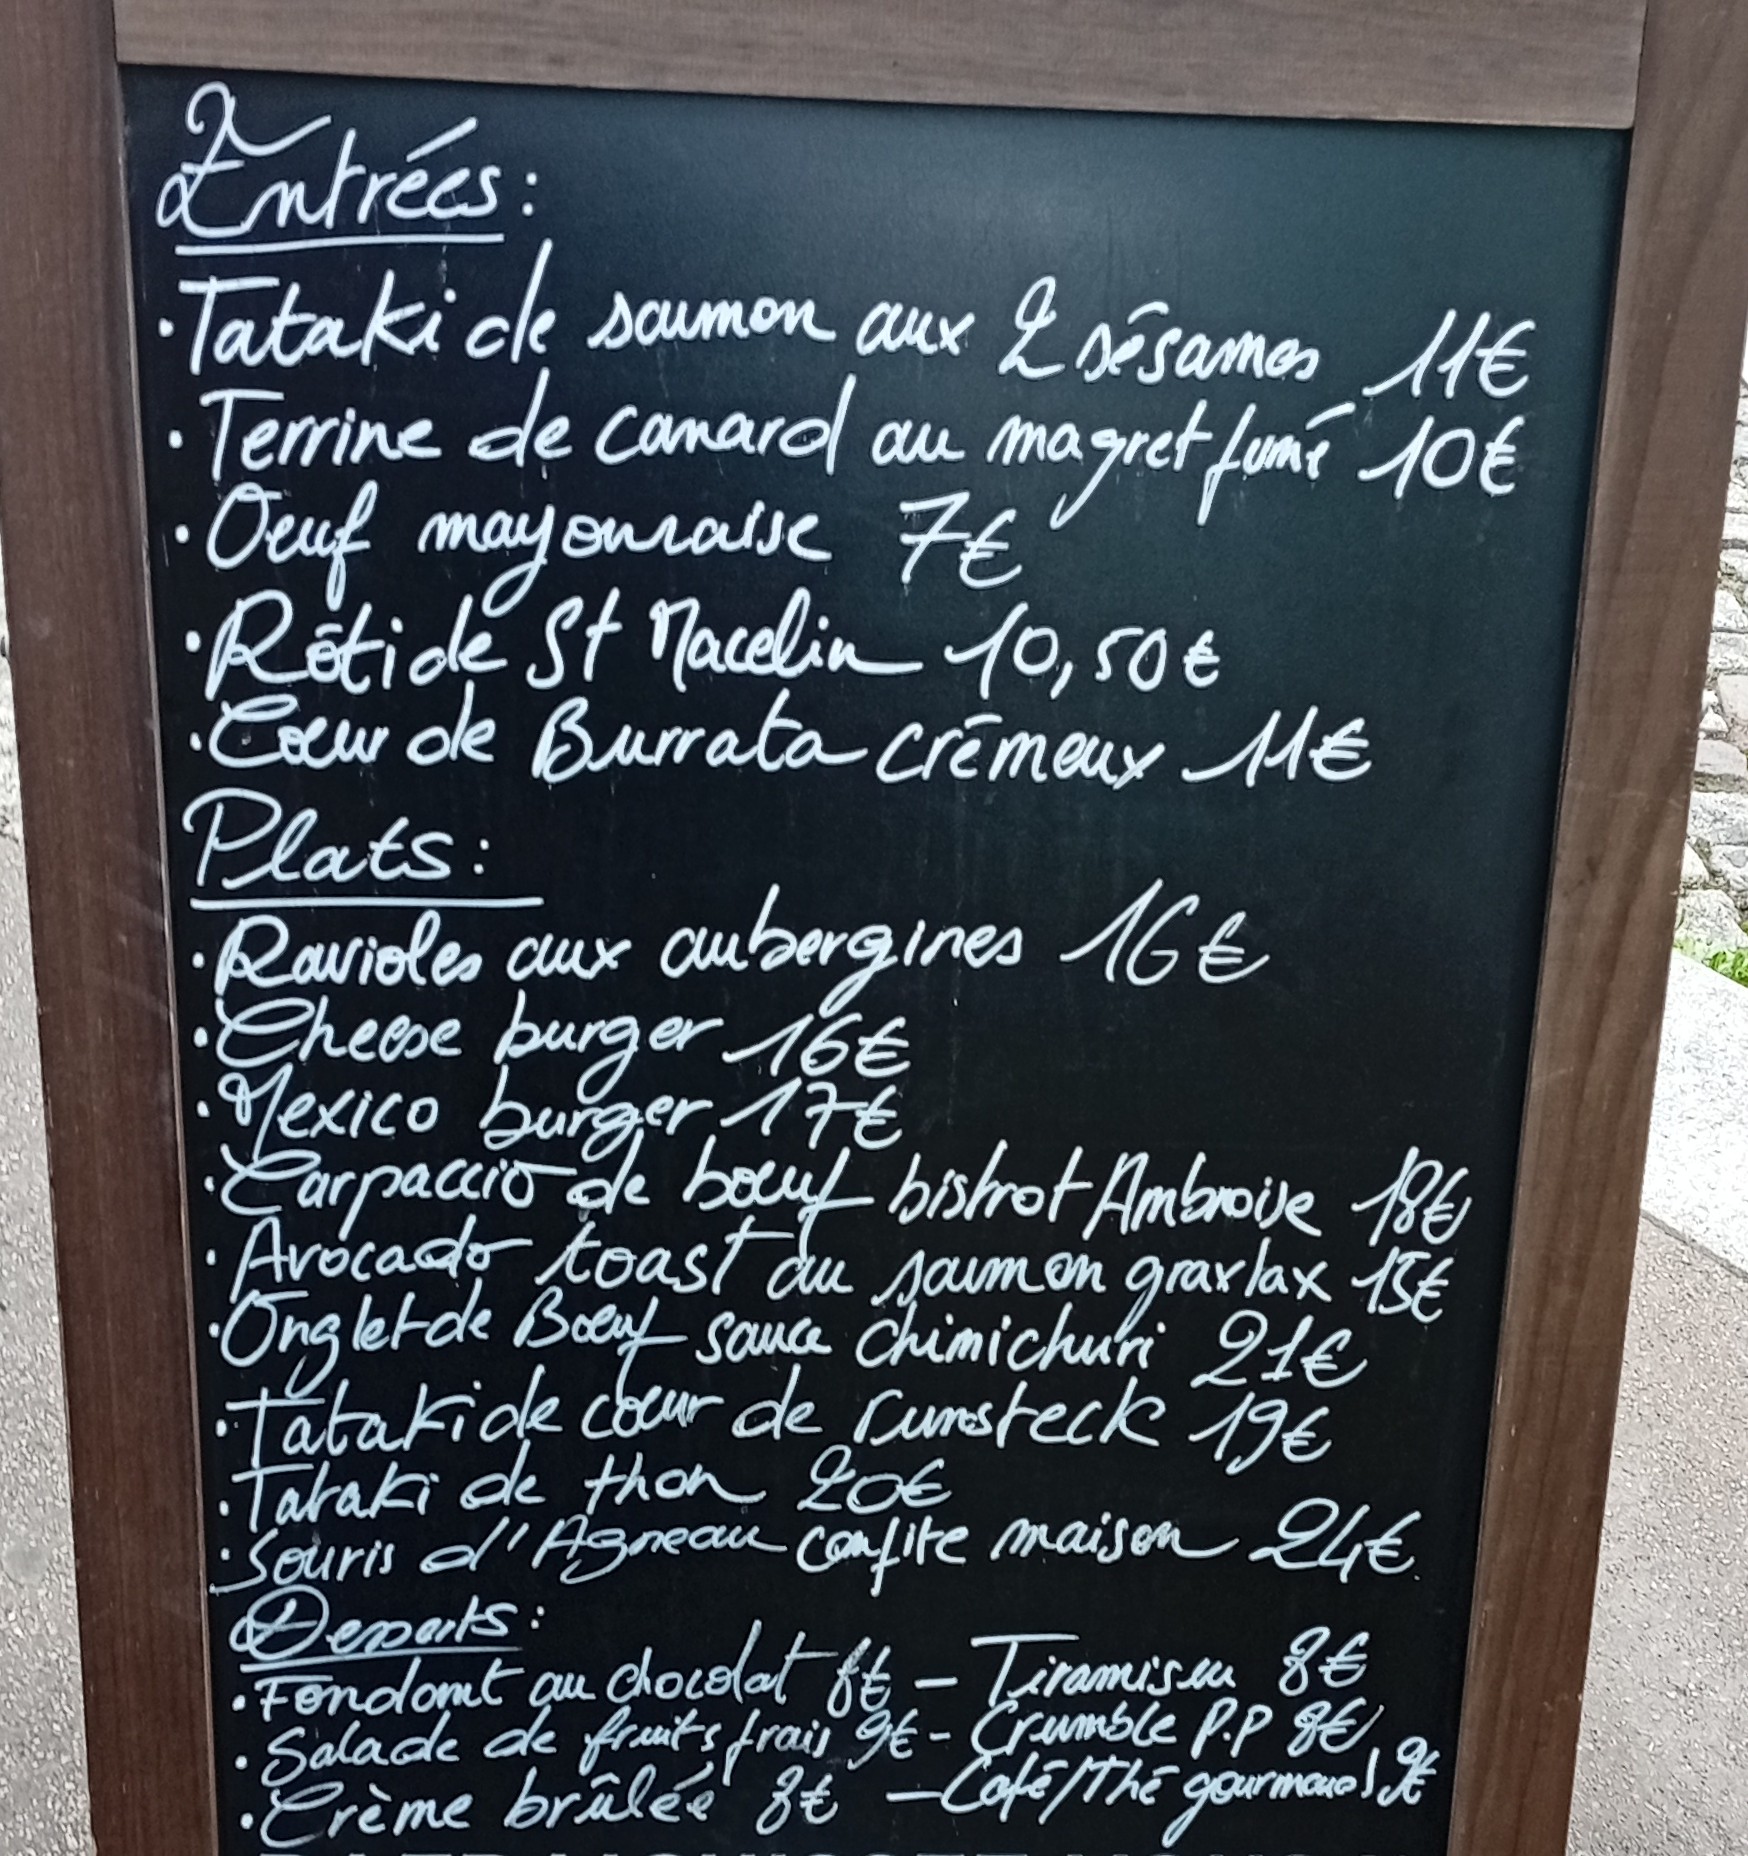 Entrées :
• Tataki de saumon aux 2 sésames 11€
• Terrine de canard au magret fumé 10€
• Oeuf mayonnaise 7€
• Rôti de St Macelin 10,50€
• Cœur de Burrata crémeux 11€
Plats :
• Ravioles aux aubergines 16€
• Cheese burger 16€
• Mexico burger 17€
• Carpaccio de bœuf bistrot Ambroise 18€
• Avocado toast au saumon gravlax 15€
• Onglet de Bœuf sauce chimichuri 21€
• Tataki de cœur de rumsteck 19€
• Tataki de thon 20€
• Souris d'Agneau confite maison 24€
Desserts :
• Fondant au chocolat 8€ – Tiramisu 8€
• Salade de fruits frais 9€ – Crumble P.P 8€
• Crème brûlée 8€ – Café/Thé gourmand 9€